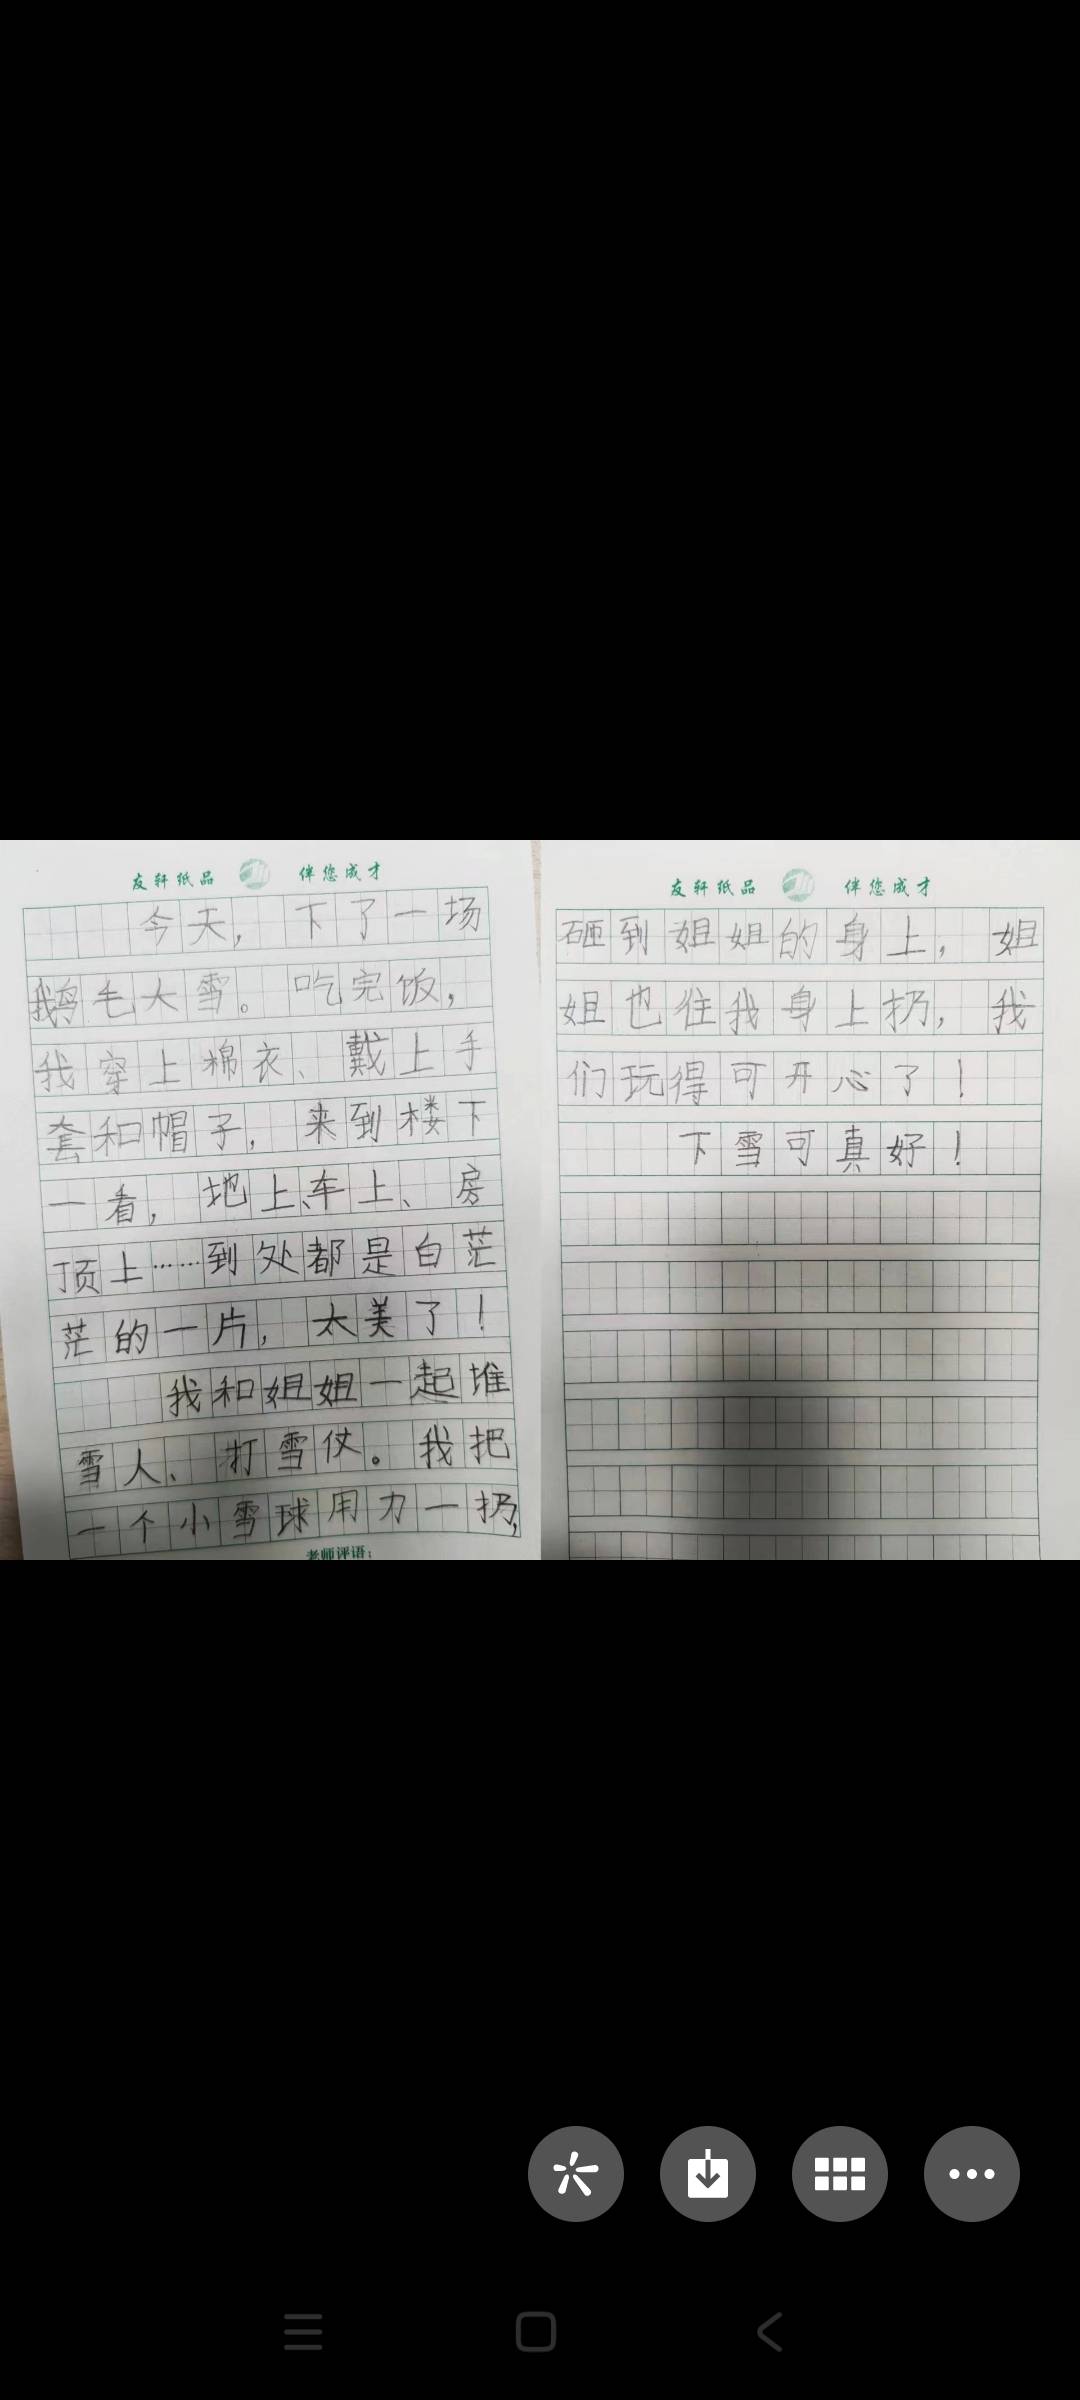 友轩纸品 伴您成才
今天，下了一场
鹅毛大雪。吃完饭，
我穿上棉衣、戴上手
套和帽子，来到楼下
一看，地上、车上、房
顶上……到处都是白茫
茫的一片，太美了！
我和姐姐一起堆
雪人、打雪仗。我把
一个小雪球用力一扔，
老师评语：
友轩纸品 伴您成才
砸到姐姐的身上，姐
姐也往我身上扔，我
们玩得可开心了！
下雪可真好！